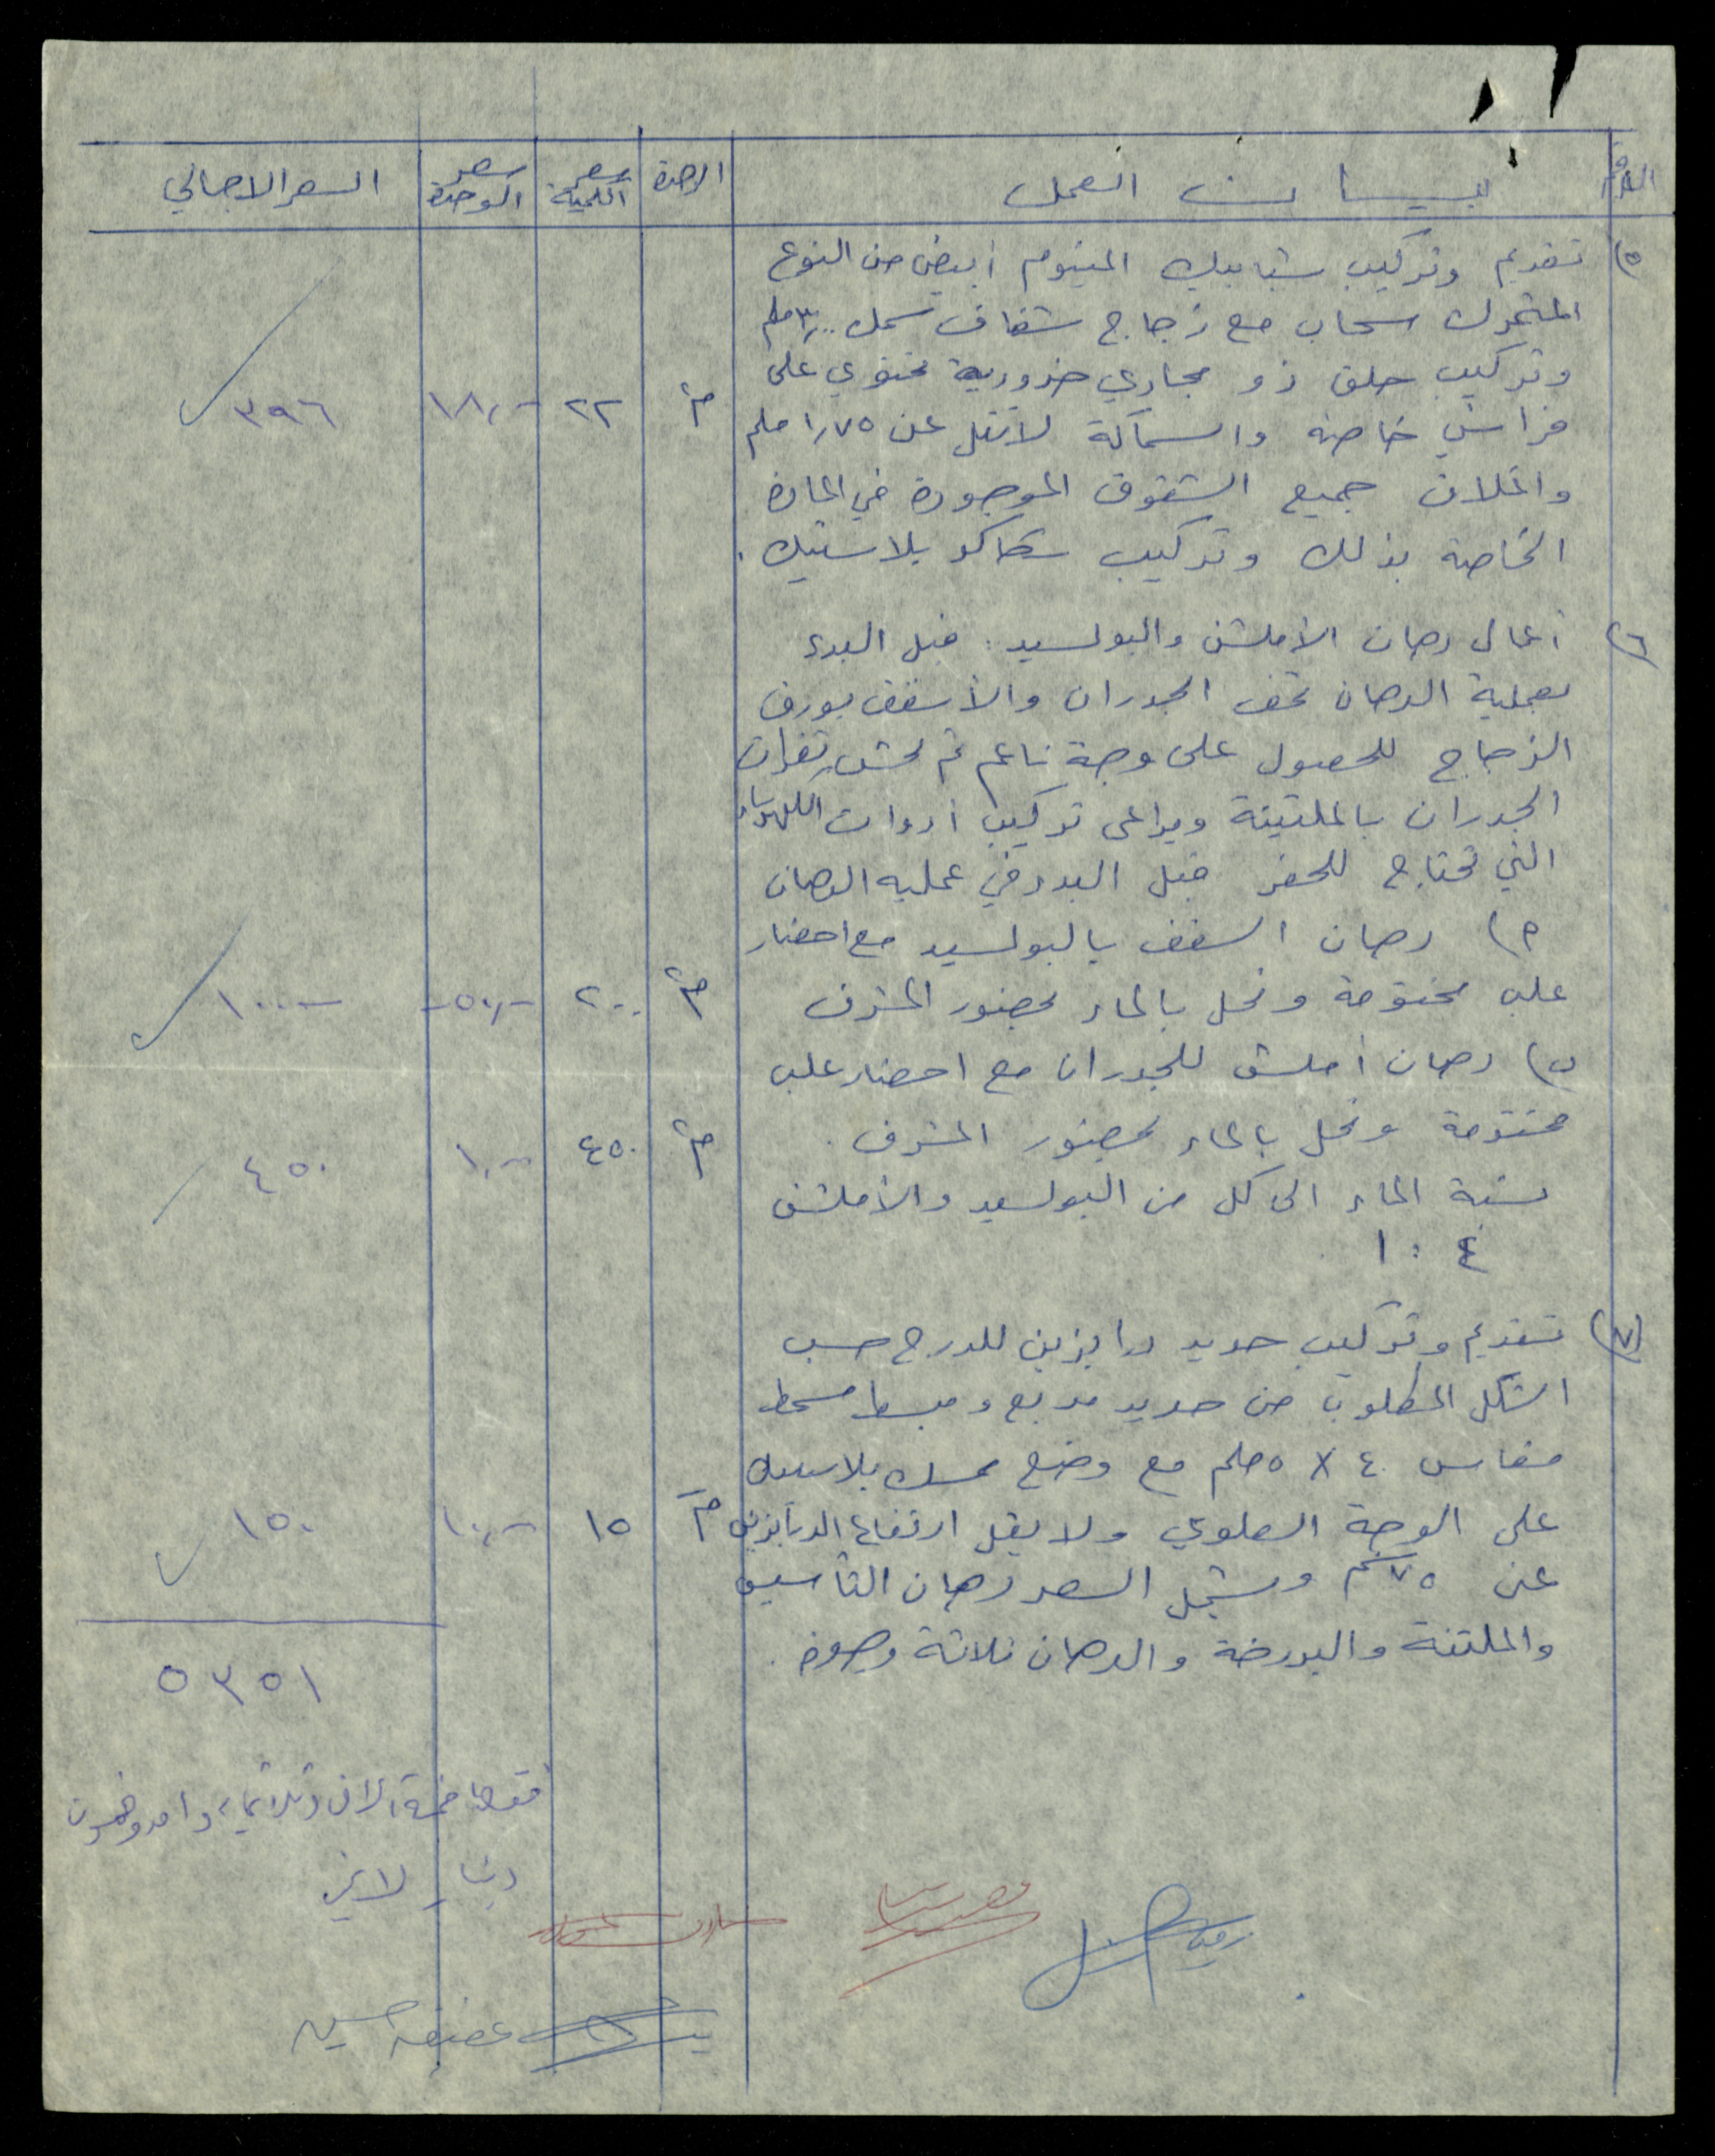 الرقم بيان العمل الوحدة سعر الكمية سعر الوحدة السعر الاجمالي
٥) تقديم وتركيب شبابيك المنيوم أبيض من النوع
المتحرك سحاب مع زجاج شفاف سمك ٣٫٠٠ ملم
وتركيب حلق ذو مجاري ضرورية تحتوي على
فراشي خاصة والسماكة لا تقل عن ١٫٧٥ ملم م٢ ٢٢ ١٨٫- ٣٩٦
واغلاق جميع الشقوق الموجودة في المادة
الخاصة بذلك وتركيب سكاكو بلاستيك .
٦) أعمال دهان الأملشن والبولسيد : قبل البدء
بعملية الدهان تحف الجدران والأسقف بورق
الزجاج للحصول على وجة ناعم ثم تحش ثغرات
الجدران بالملتينة ويراعى تركيب أدوات الكهرباء
التي تحتاج للحفر قبل البدء في عملية الدهان
أ) دهان السقف بالبولسيد مع احضار
علب مختومة وتحل بالماء بحضور المشرف م٢ ٢٠٠ -٫٥٠- ١٠٠٫-
ب) دهان أملشن للجدران مع احضار علب
مختومة وتحل بالماء بحضور المشرف . م٢ ٤٥٠ ١٫- ٤٥٠
نسبة الماء الى كل من البولسيد والأملشن
٤ : ١
٧) تقديم وتركيب حديد درابزين للدرج حسب
الشكل المطلوب من حديد مربع ومبسط
مقاس ٤٠ × ٥ ملم مع وضع مسك بلاستيك
على الوجة العلوي ولا يقل ارتفاع الدرابزين م ١٥ ١٠٫- ١٥٠
عن ٧٥ سم ويشمل السعر دهان التأسيس
والملتنة والبودرضة والدهان ثلاثة وجوه .
٥٣٥١
فقط خمسة آلاف وثلاثمائة وواحد وخمسون
دينار لا غير
حسين